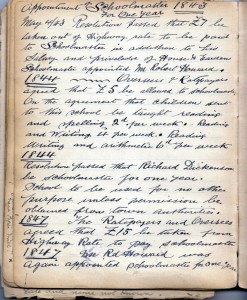 Appointment Schoolmaster 1843
For One Year
May 4/43 Resolution passed that £7 be
taken out of Highway rate to be paid to
Schoolmaster in addition to his
Salary and privilege of House & Garden
Schoolmaster appointed Mr Robert Howard
1844 Overseers & Ratepayers
agreed that £5 be allowed to schoolmaster
On the agreement that children sent
to this school be taught reading
and spelling 2d per week. Reading
and Writing 4d per week. Reading
Writing and arithmetic 6d per week
1844
Resolution passes that Richard Dickenson
be schoolmaster for one year.
School to be used for no other
purpose unless permission be
obtained from town authorities.
1847 The Ratepayers and Overseers
agreed that £15 be taken from
Highway Rate to pay schoolmaster
1847 Howard was
again appointed schoolmaster for one